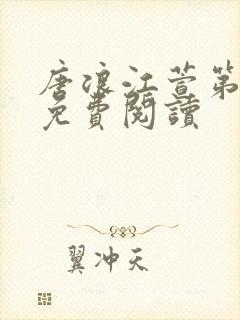 唐浪江萱第
免費閱讀
翼冲天